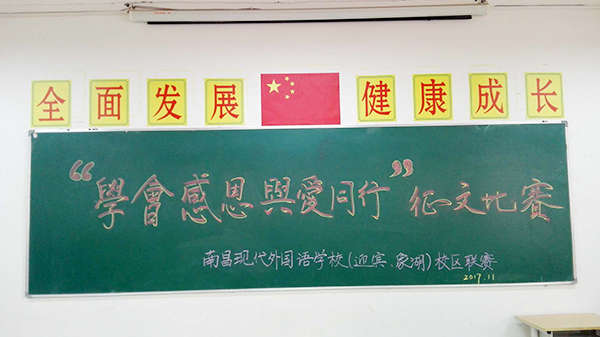 全面发展 健康成长
“學會感恩與愛同行”征文比賽
南昌现代外国语学校(迎宾、象湖)校区联赛
2017.11